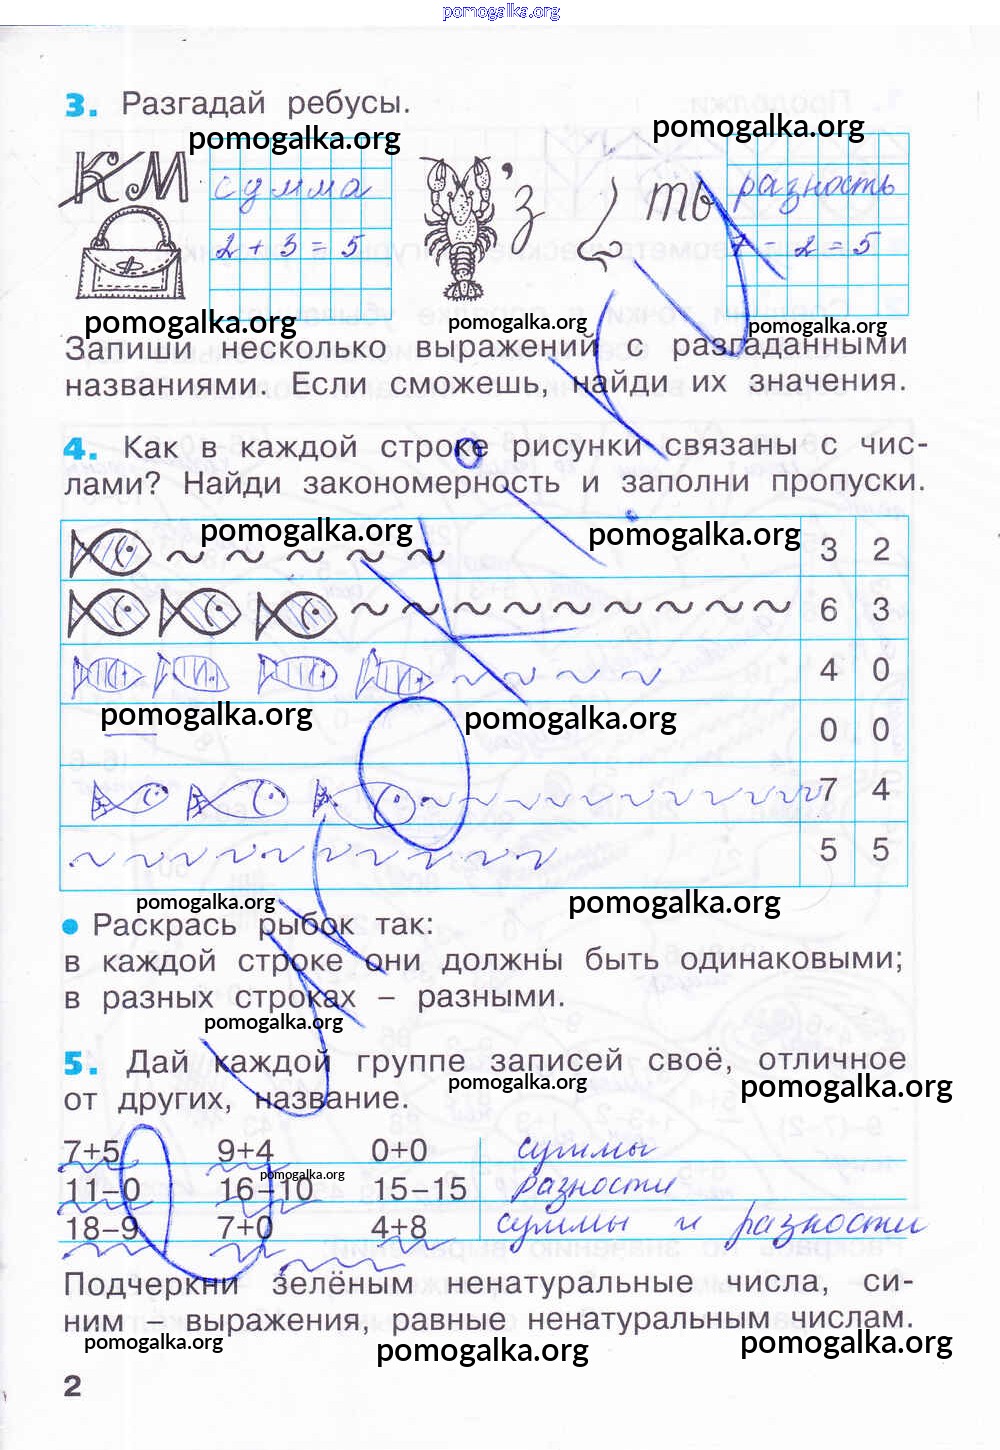 pomogalka.org
3. Разгадай ребусы.
pomogalka.org pomogalka.org
КМ сумма ’з ть разность
2 + 3 = 5 7 - 2 = 5
pomogalka.org pomogalka.org pomogalka.org
Запиши несколько выражений с разгаданными
названиями. Если сможешь, найди их значения.
4. Как в каждой строке рисунки связаны с чис-
лами? Найди закономерность и заполни пропуски.
pomogalka.org pomogalka.org
3 2
6 3
4 0
pomogalka.org pomogalka.org
0 0
7 4
5 5
pomogalka.org pomogalka.org
• Раскрась рыбок так:
в каждой строке они должны быть одинаковыми;
в разных строках – разными.
pomogalka.org
5. Дай каждой группе записей своё, отличное
pomogalka.org pomogalka.org
от других, название.
7+5 9+4 0+0 суммы
pomogalka.org
11–0 16–10 15–15 разности
18–9 7+0 4+8 суммы и разности
Подчеркни зелёным ненатуральные числа, си-
ним – выражения, равные ненатуральным числам.
pomogalka.org pomogalka.org pomogalka.org
2